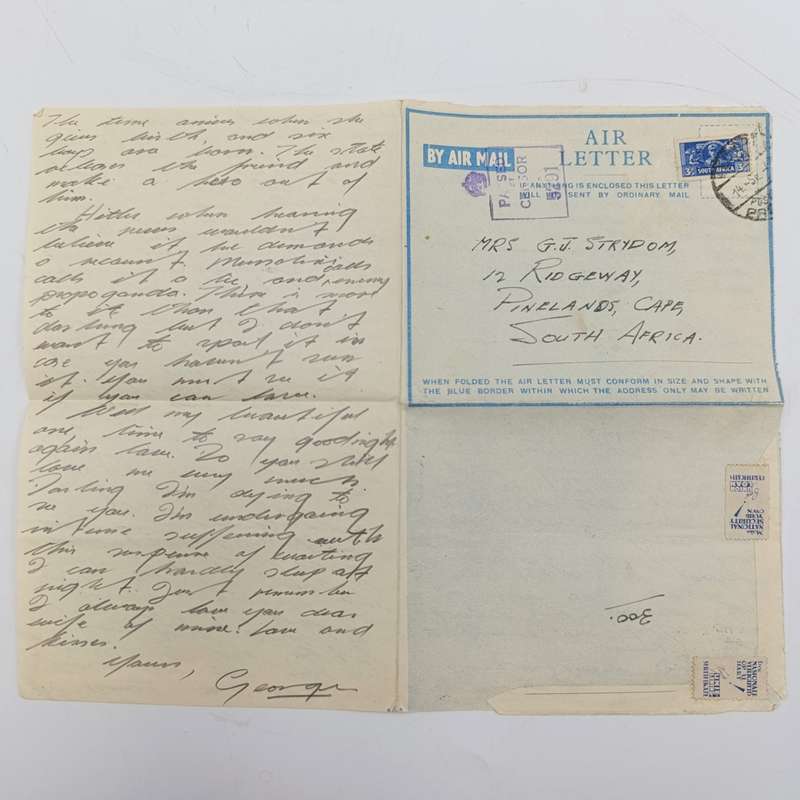 The time arrives when she
gives birth and six
boys are born. The state
acclaims the friend and
make a hero out of
him.
Hitler when hearing
the news wouldn't
believe it he demands
a recount. Mussolini calls
calls it a lie and enemy
propoganda. There is more
to it than that
darling but I don't
want to spoil it in
case you haven't seen
it. You must see it
if you can love.
Well my beautiful
one, time to say goodnight
again love. Do you still
love me very much
Darling I'm dying to
see you. I'm undergoing
intense suffering with
this suspense of waiting
I can hardly sleep at
night. Just remember
I always love you dear
wife of mine. Love and
kisses.
Yours,
George
BY AIR MAIL
AIR
LETTER
IF ANYTHING IS ENCLOSED THIS LETTER
WILL BE SENT BY ORDINARY MAIL
CENSOR
SOUTH AFRICA
3D
MRS G.J. STRYDOM,
12 RIDGEWAY,
PINELANDS, CAPE,
SOUTH AFRICA.
WHEN FOLDED THE AIR LETTER MUST CONFORM IN SIZE AND SHAPE WITH
THE BLUE BORDER WITHIN WHICH THE ADDRESS ONLY MAY BE WRITTEN
Make
NATIONAL
SECURITY
YOUR
OWN
LOAN
CERTIFICATES
300.
NASIONALE
SERTIFIKATE